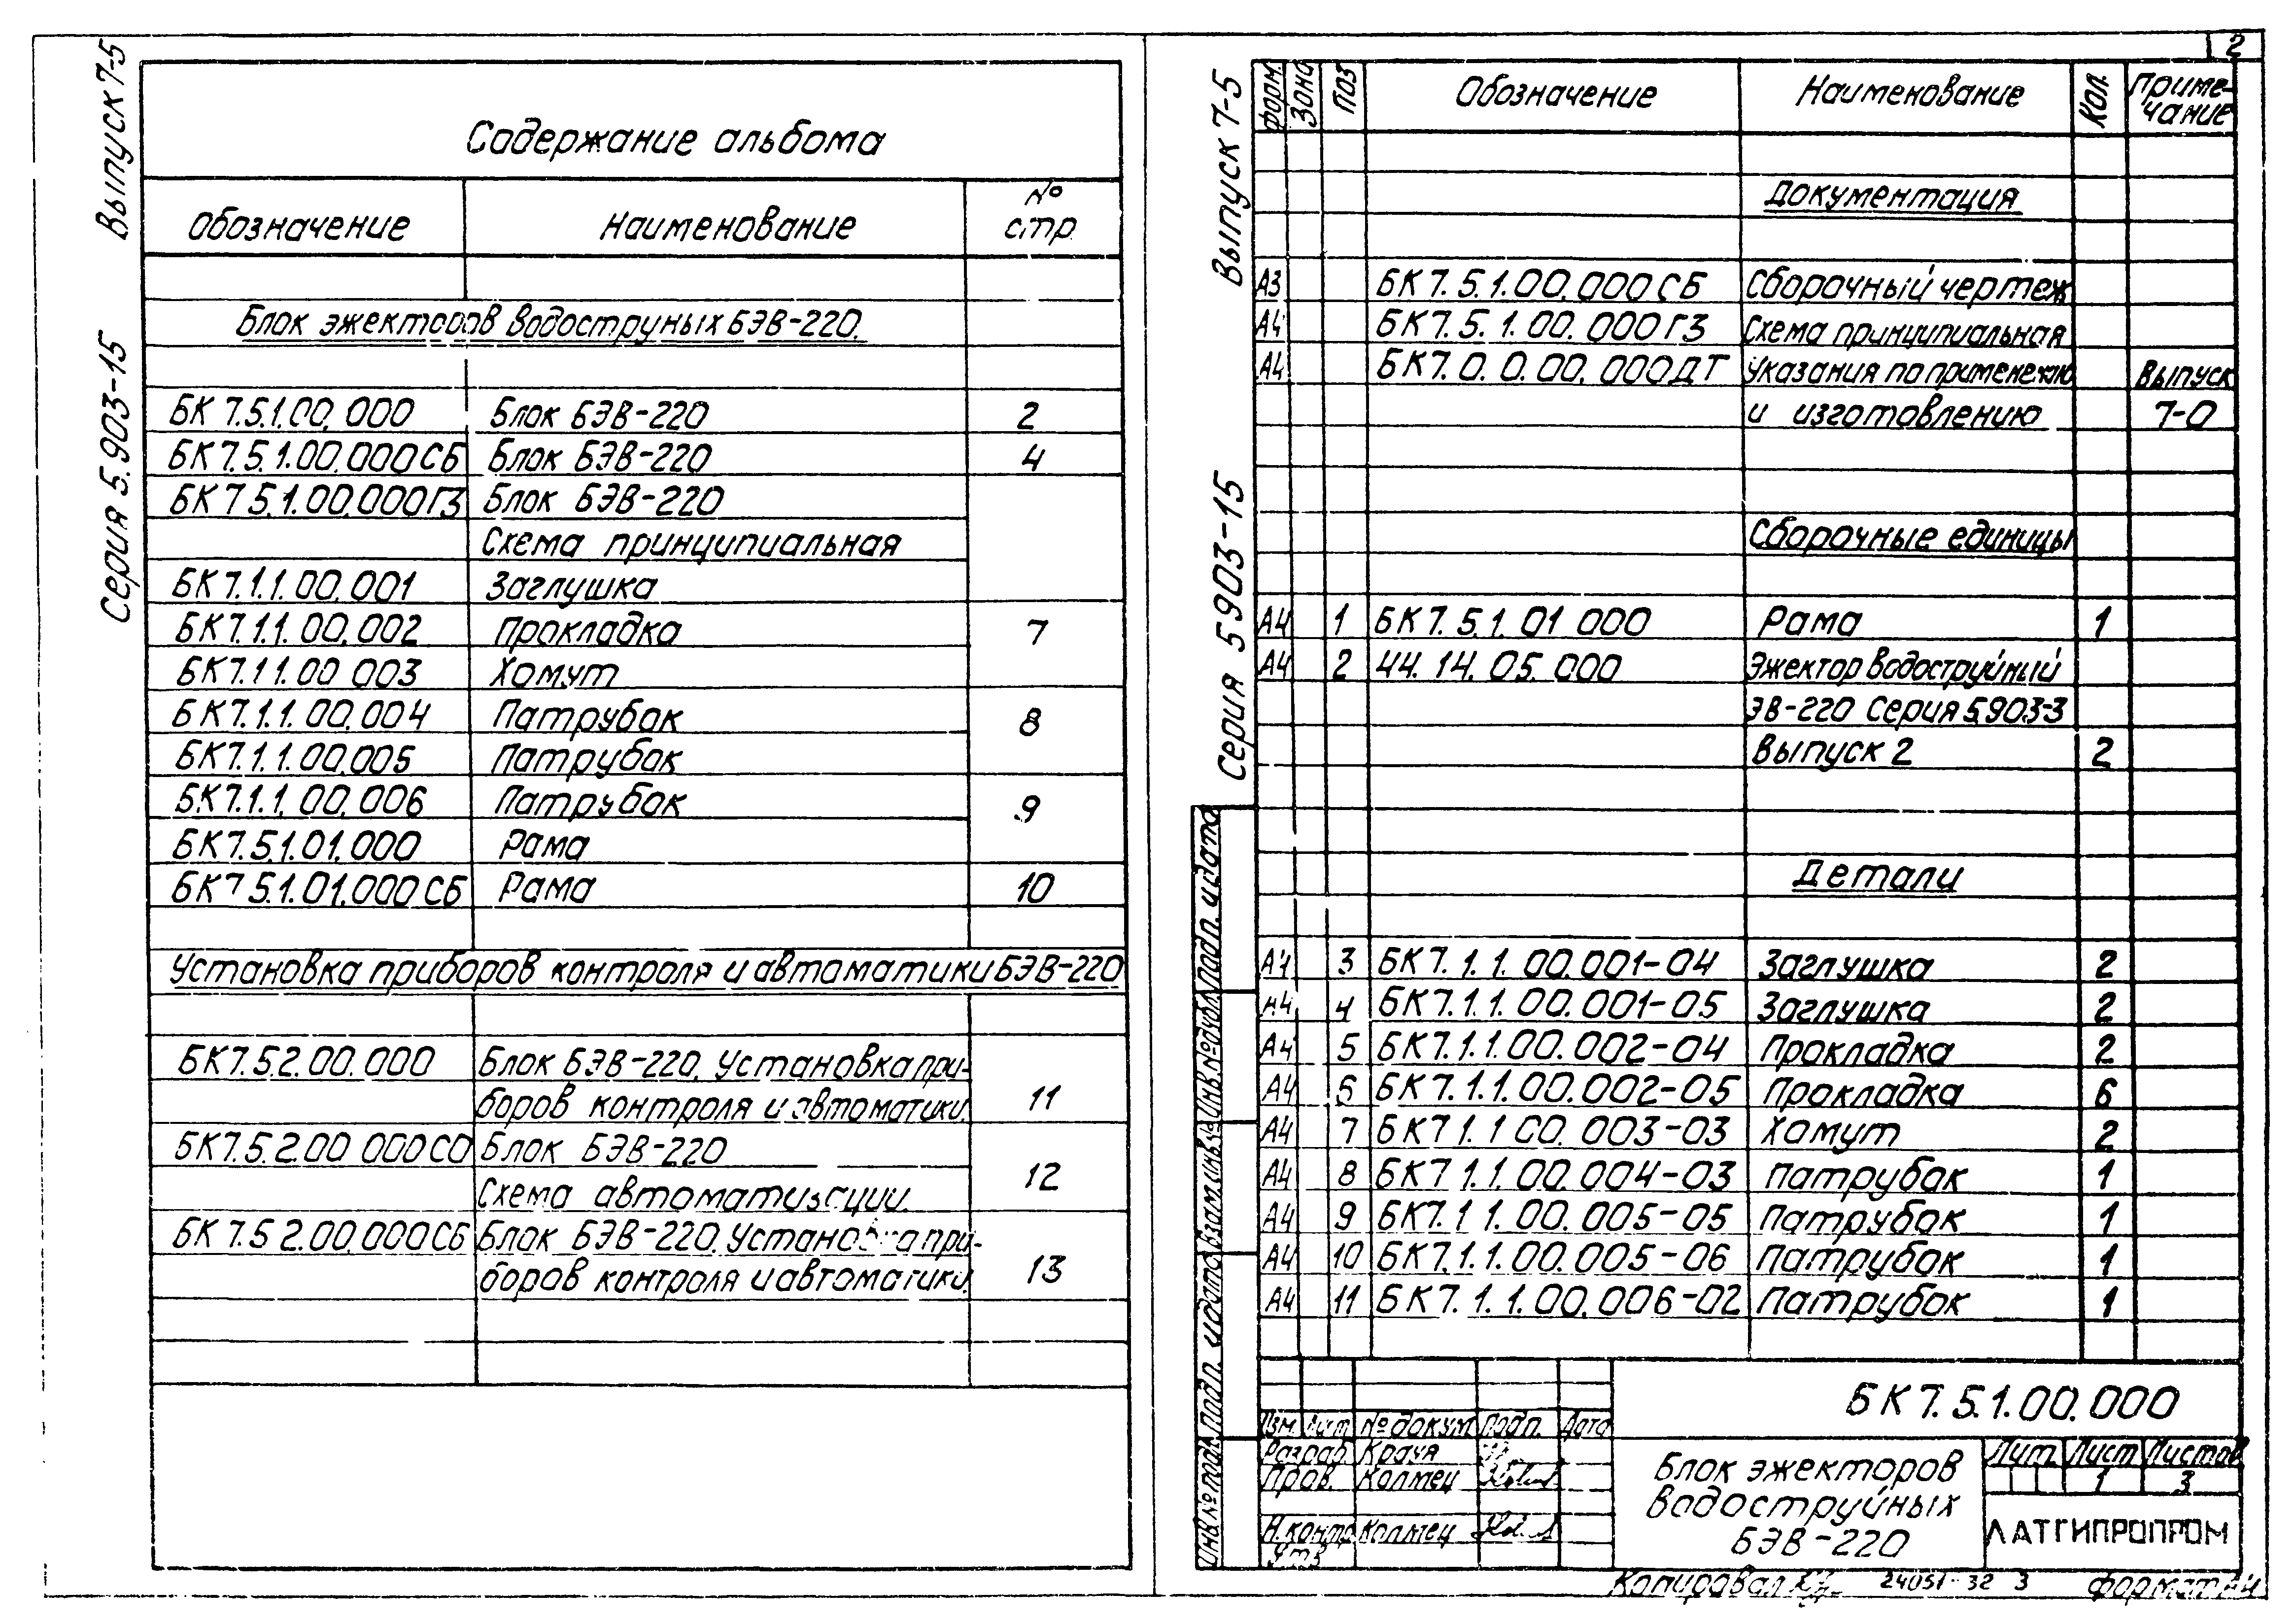 Серия 5.903-15 Выпуск 7-5
Содержание альбома
Обозначение Наименование № стр.
Блок эжекторов водоструных БЭВ-220.
БК 7.5.1.00.000 Блок БЭВ-220 2
БК 7.5.1.00.000СБ Блок БЭВ-220 4
БК 7.5.1.00.000Г3 Блок БЭВ-220
Схема принципиальная
БК 7.1.1.00.001 Заглушка
БК 7.1.1.00.002 Прокладка 7
БК 7.1.1.00.003 Хомут
БК 7.1.1.00.004 Патрубок 8
БК 7.1.1.00.005 Патрубок
БК 7.1.1.00.006 Патрубок 9
БК 7.5.1.01.000 Рама
БК 7.5.1.01.000СБ Рама 10
Установка приборов контроля и автоматики БЭВ-220
БК 7.5.2.00.000 Блок БЭВ-220. Установка при-
боров контроля и автоматики. 11
БК 7.5.2.00.000СО Блок БЭВ-220
Схема автоматизации. 12
БК 7.5.2.00.000СБ Блок БЭВ-220. Установка при-
боров контроля и автоматики. 13
2
Серия 5.903-15 Выпуск 7-5
Форм. Зона Поз Обозначение Наименование Кол. Приме-
чание
Документация
А3 БК 7.5.1.00.000СБ Сборочный чертеж
А4 БК 7.5.1.00.000Г3 Схема принципиальная
А4 БК 7.0.0.00.000ДТ Указания по применению Выпуск
и изготовлению 7-0
Сборочные единицы
А4 1 БК 7.5.1.01.000 Рама 1
А4 2 44.14.05.000 Эжектор водоструйный
ЭВ-220 Серия 5.903-3
Выпуск 2 2
Детали
А4 3 БК 7.1.1.00.001-04 Заглушка 2
А4 4 БК 7.1.1.00.001-05 Заглушка 2
А4 5 БК 7.1.1.00.002-04 Прокладка 2
А4 6 БК 7.1.1.00.002-05 Прокладка 6
А4 7 БК 7.1.1.00.003-03 Хомут 2
А4 8 БК 7.1.1.00.004-03 Патрубок 1
А4 9 БК 7.1.1.00.005-05 Патрубок 1
А4 10 БК 7.1.1.00.005-06 Патрубок 1
А4 11 БК 7.1.1.00.006-02 Патрубок 1
Инв.№ подл. Подп. и дата Взам. инв.№ Инв.№ дубл. Подп. и дата
БК 7.5.1.00.000
Изм. Лист № докум. Подп. Дата
Разраб. Крауя
Пров. Колмец
Н.контр. Колмец
Утв.
Блок эжекторов
водоструйных
БЭВ-220
Лит. Лист Листов
1 3
ЛАТГИПРОПРОМ
Копировал 24051-32 3 Формат А4